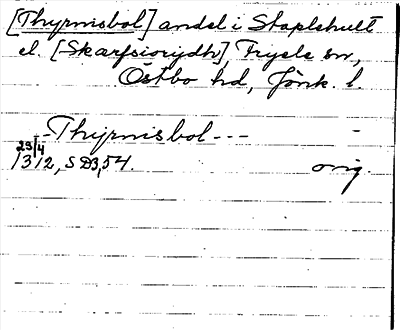 [Thyrmisbol] andel i Staplshult
el. [Skarfsiorydh], Fryele sn,
Östbo hd, Jönk. l.
- Thyrmisbol - - - -
23/4
1312, SD3,54. orig.